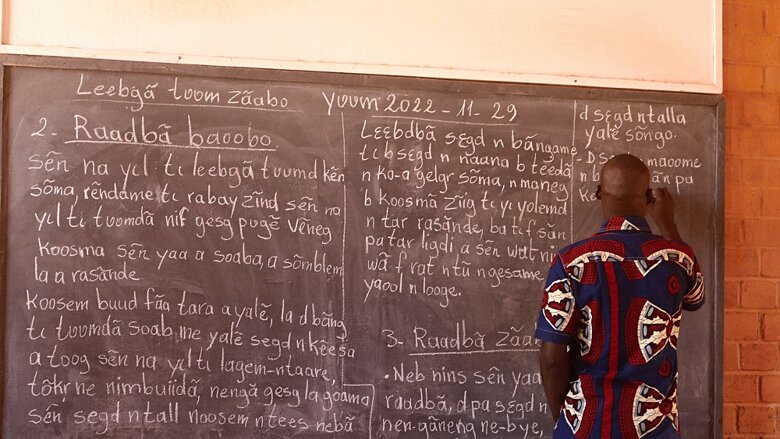 Leebgã tʋʋm zãabo
yʋʋm 2022-11-29
2. Raadbã baoobo
sẽn na yɩl tɩ leebgã tʋʋmd kẽn
sõma, rẽndame tɩ rabay zĩnd sẽn na
yɩl tɩ tʋʋmdã nif gesg pʋgẽ vẽneg
koosma sẽn yaa a soaba, a sõmblem
la a rasãnde.
koosem buud fãa tara a yalẽ, la d bãng
tɩ tʋʋmdã soab, me yalẽ segd n kẽesa
a toog sẽn na yɩl tɩ lagem-n-taare,
tõkr ne nimbuiidã, nengã gesg la goama
sẽn segd n tall noosem n tees nebã
Leebdbã sɛgd n bãngame
tɩ b segd n naana b tẽedã
n ko-a gelgr sõma, n maneg
b koosmã zĩɩg tɩ yɩ yolemd
n tar rasãnde, ba tɩ f sãn
pa tar ligdi a sẽn wat n ti
wã f rat n tũ n gesame
yaool n looge.
3- Raadbã zãa
- Neb nins sẽn yaa
raadbã, d pa sɛgd n
nen-gãneng ne-b ye,
d sɛgd n talla
yalẽ sõngo.
maoome
pa